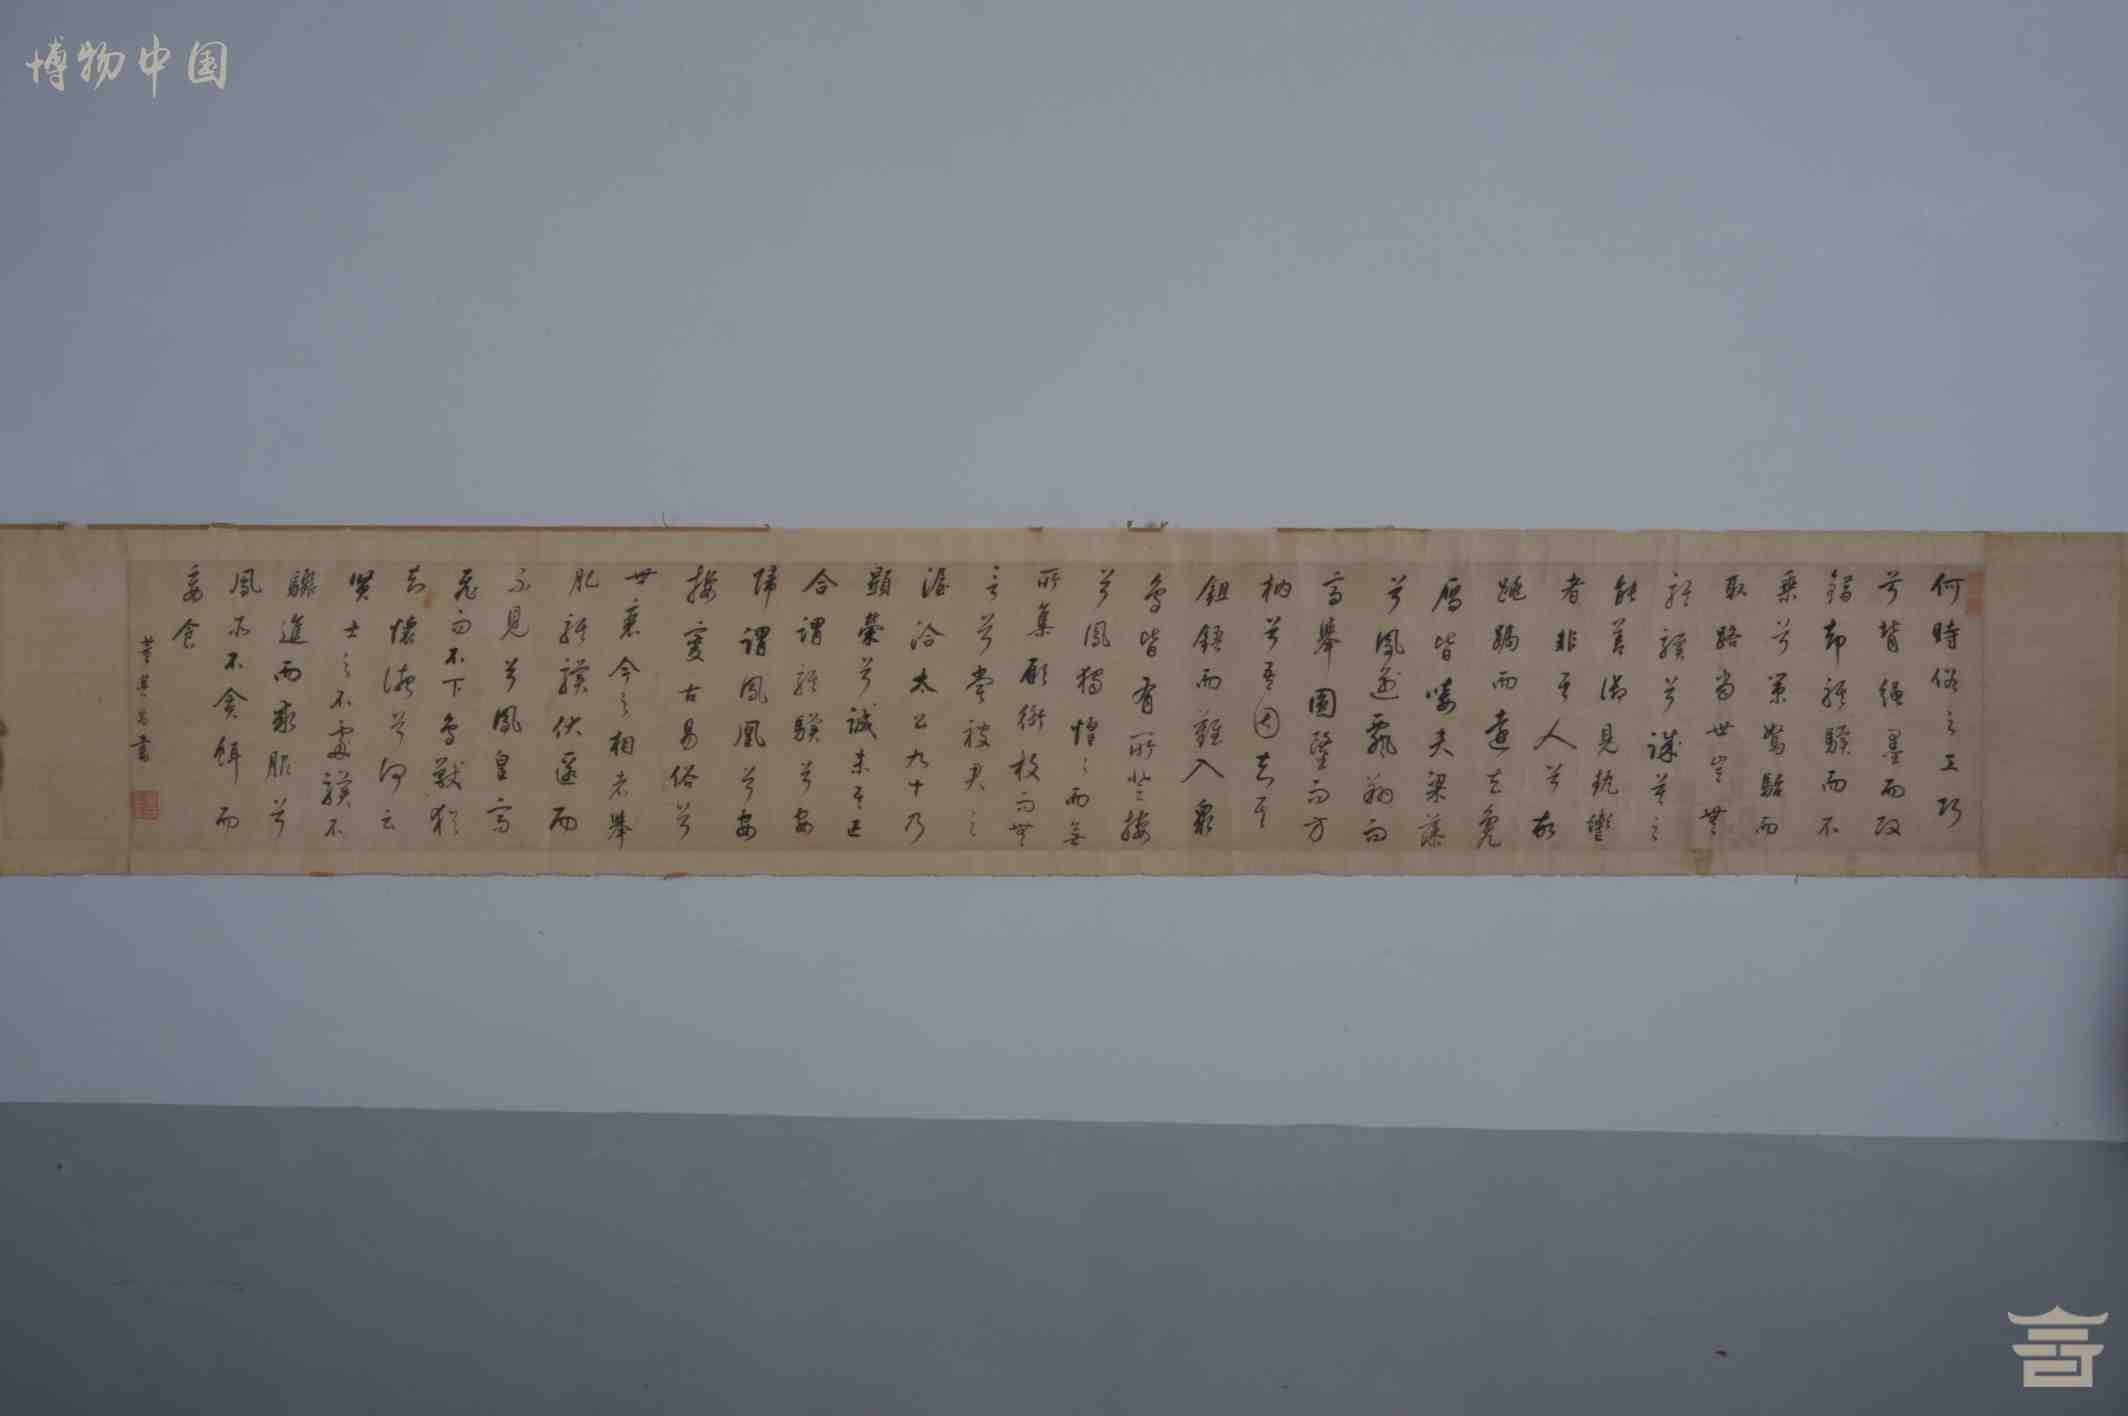 博物中国
何時俗之工巧
兮背繩墨而改
錯却騏驥而不
乘兮策駑駘而
取路當世豈無
騏驥兮誠莫之
能善御見執轡
者非其人兮故
跳跼而遠去鳧
雁皆唼夫粱藻
兮鳳逾飄翔而
高舉圜鑿而方
枘兮吾固知其
鉏鋙而難入眾
鳥皆有所登棲
兮鳳獨惶惶而無
所集願銜枚而無
言兮嘗被君之
渥洽太公九十乃
顯榮兮誠未其匹
合謂騏驥兮安
歸謂鳳凰兮安
棲變古易俗兮
世衰今之相者舉
肥騏驥伏匿而
不見兮鳳皇高
飛而不下鳥獸猶
知懷德兮何云
賢士之不處驥不
驟進而求服兮
鳳亦不貪餌而
妄食
董其昌書